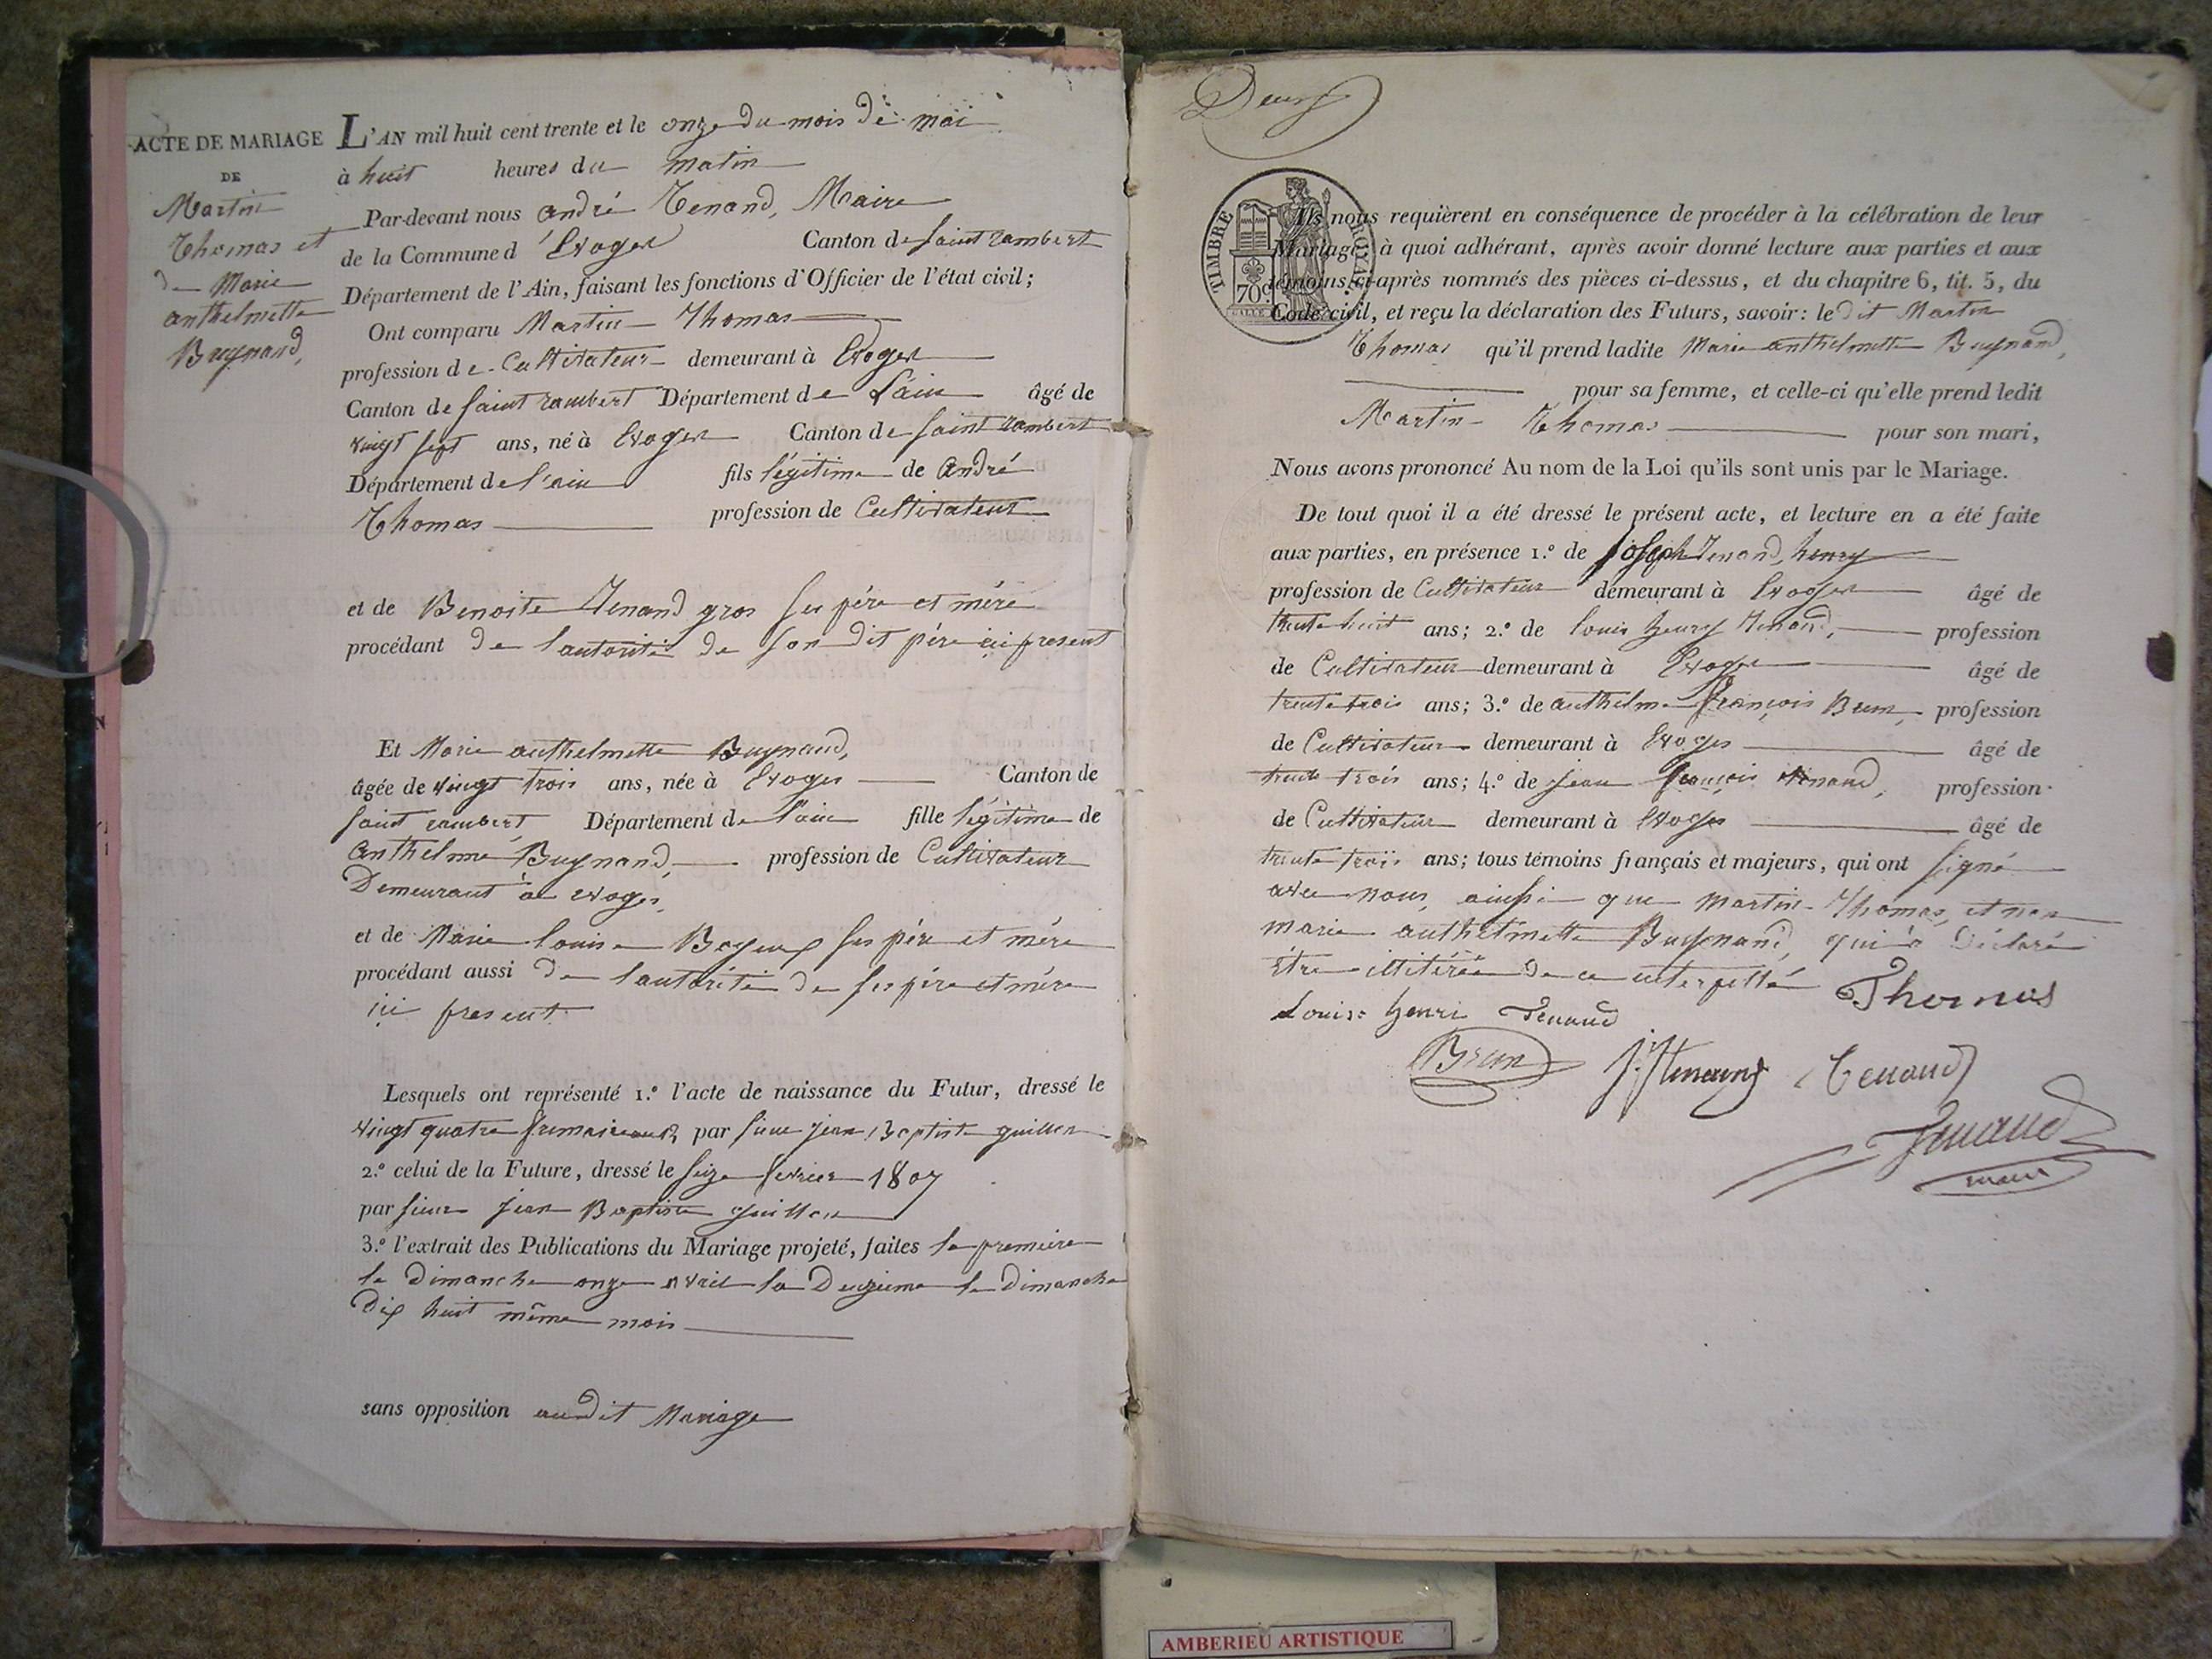 ACTE DE MARIAGE
DE
Martin
Thomas et
de Marie
anthelmette
Buynand,
L'AN mil huit cent trente et le onze du mois de mai
à huit heures du matin
Par-devant nous andré Tenand, Maire
de la Commune d'Evoges Canton de saint rambert
Département de l'Ain, faisant les fonctions d'Officier de l'état civil;
Ont comparu Martin Thomas
profession de Cultivateur demeurant à Evoges
Canton de saint rambert Département de L'ain âgé de
vingt sept ans, né à Evoges Canton de saint rambert
Département de l'ain fils légitime de André
Thomas profession de Cultivateur
et de Benoite Tenand gros ses père et mère
procédant de l'autorité de son dit père ici present
Et Marie anthelmette Buynand,
âgée de vingt trois ans, née à Evoges Canton de
saint rambert Département de l'ain fille légitime de
Anthelme Buynand, profession de Cultivateur
Demeurant à Evoges,
et de Marie louise ses père et mère
procédant aussi de l'autorité de ses père et mère
ici present
Lesquels ont représenté 1.º l'acte de naissance du Futur, dressé le
vingt quatre frimaire par sieur jean Baptiste guillon
2.º celui de la Future, dressé le seize fevrier 1807
par sieur jean Baptiste guillon
3.º l'extrait des Publications du Mariage projeté, faites la premiere
le Dimanche onze avril la Deuxieme le Dimanche
Dix huit même mois
sans opposition audit Mariage
Deux
TIMBRE ROYAL
70c
Ils nous requièrent en conséquence de procéder à la célébration de leur
Mariage; à quoi adhérant, après avoir donné lecture aux parties et aux
témoins ci-après nommés des pièces ci-dessus, et du chapitre 6, tit. 5, du
Code civil, et reçu la déclaration des Futurs, savoir: le dit Martin
Thomas qu'il prend ladite Marie anthelmette Buynand,
pour sa femme, et celle-ci qu'elle prend ledit
Martin Thomas pour son mari,
Nous avons prononcé Au nom de la Loi qu'ils sont unis par le Mariage.
De tout quoi il a été dressé le présent acte, et lecture en a été faite
aux parties, en présence 1.º de joseph Tenand, henry
profession de Cultivateur demeurant à Evoges âgé de
trente huit ans; 2.º de louis henry Tenand, profession
de Cultivateur demeurant à Evoges âgé de
trente trois ans; 3.º de anthelme françois Brun, profession
de Cultivateur demeurant à Evoges âgé de
trente trois ans; 4.º de jean françois Tenand, profession
de Cultivateur demeurant à Evoges âgé de
trente trois ans; tous témoins français et majeurs, qui ont signé
avec nous, ainsi que martin Thomas, et non
marie anthelmette Buynand, qui a Déclaré
être illitérée De ce interpellé Thomas
Louis henri Tenand
Brun Tenand Tenand
Tenand
maire
AMBERIEU ARTISTIQUE